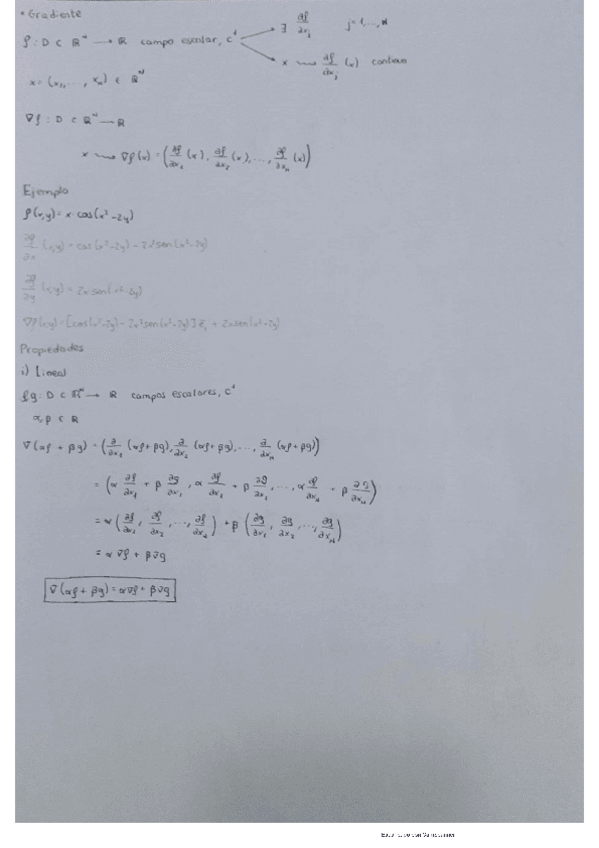 • Gradiente
f : D ⊂ ℝᴺ → ℝ campo escalar, C¹ → ∃ ∂f/∂xⱼ j=1,...,N
→ x ⇝ ∂f/∂xⱼ (x) continuo
x = (x₁, ..., x_N) ∈ ℝᴺ
∇f : D ⊂ ℝᴺ → ℝ
x ⇝ ∇f(x) = (∂f/∂x₁ (x), ∂f/∂x₂ (x), ..., ∂f/∂x_N (x))
Ejemplo
f(x,y) = x·cos(x²-2y)
∂f/∂x (x,y) = cos(x²-2y) - 2x²sen(x²-2y)
∂f/∂y (x,y) = 2x sen(x²-2y)
∇f(x,y) = [cos(x²-2y) - 2x²sen(x²-2y)] e⃗₁ + 2x sen(x²-2y)
Propiedades
i) Lineal
f,g : D ⊂ ℝᴺ → ℝ campos escalares, C¹
α,β ∈ ℝ
∇(αf + βg) = (∂/∂x₁ (αf+βg), ∂/∂x₂ (αf+βg), ..., ∂/∂x_N (αf+βg))
= (α ∂f/∂x₁ + β ∂g/∂x₁, α ∂f/∂x₂ + β ∂g/∂x₂, ..., α ∂f/∂x_N + β ∂g/∂x_N)
= α (∂f/∂x₁, ∂f/∂x₂, ..., ∂f/∂x_N) + β (∂g/∂x₁, ∂g/∂x₂, ..., ∂g/∂x_N)
= α∇f + β∇g
∇(αf + βg) = α∇f + β∇g